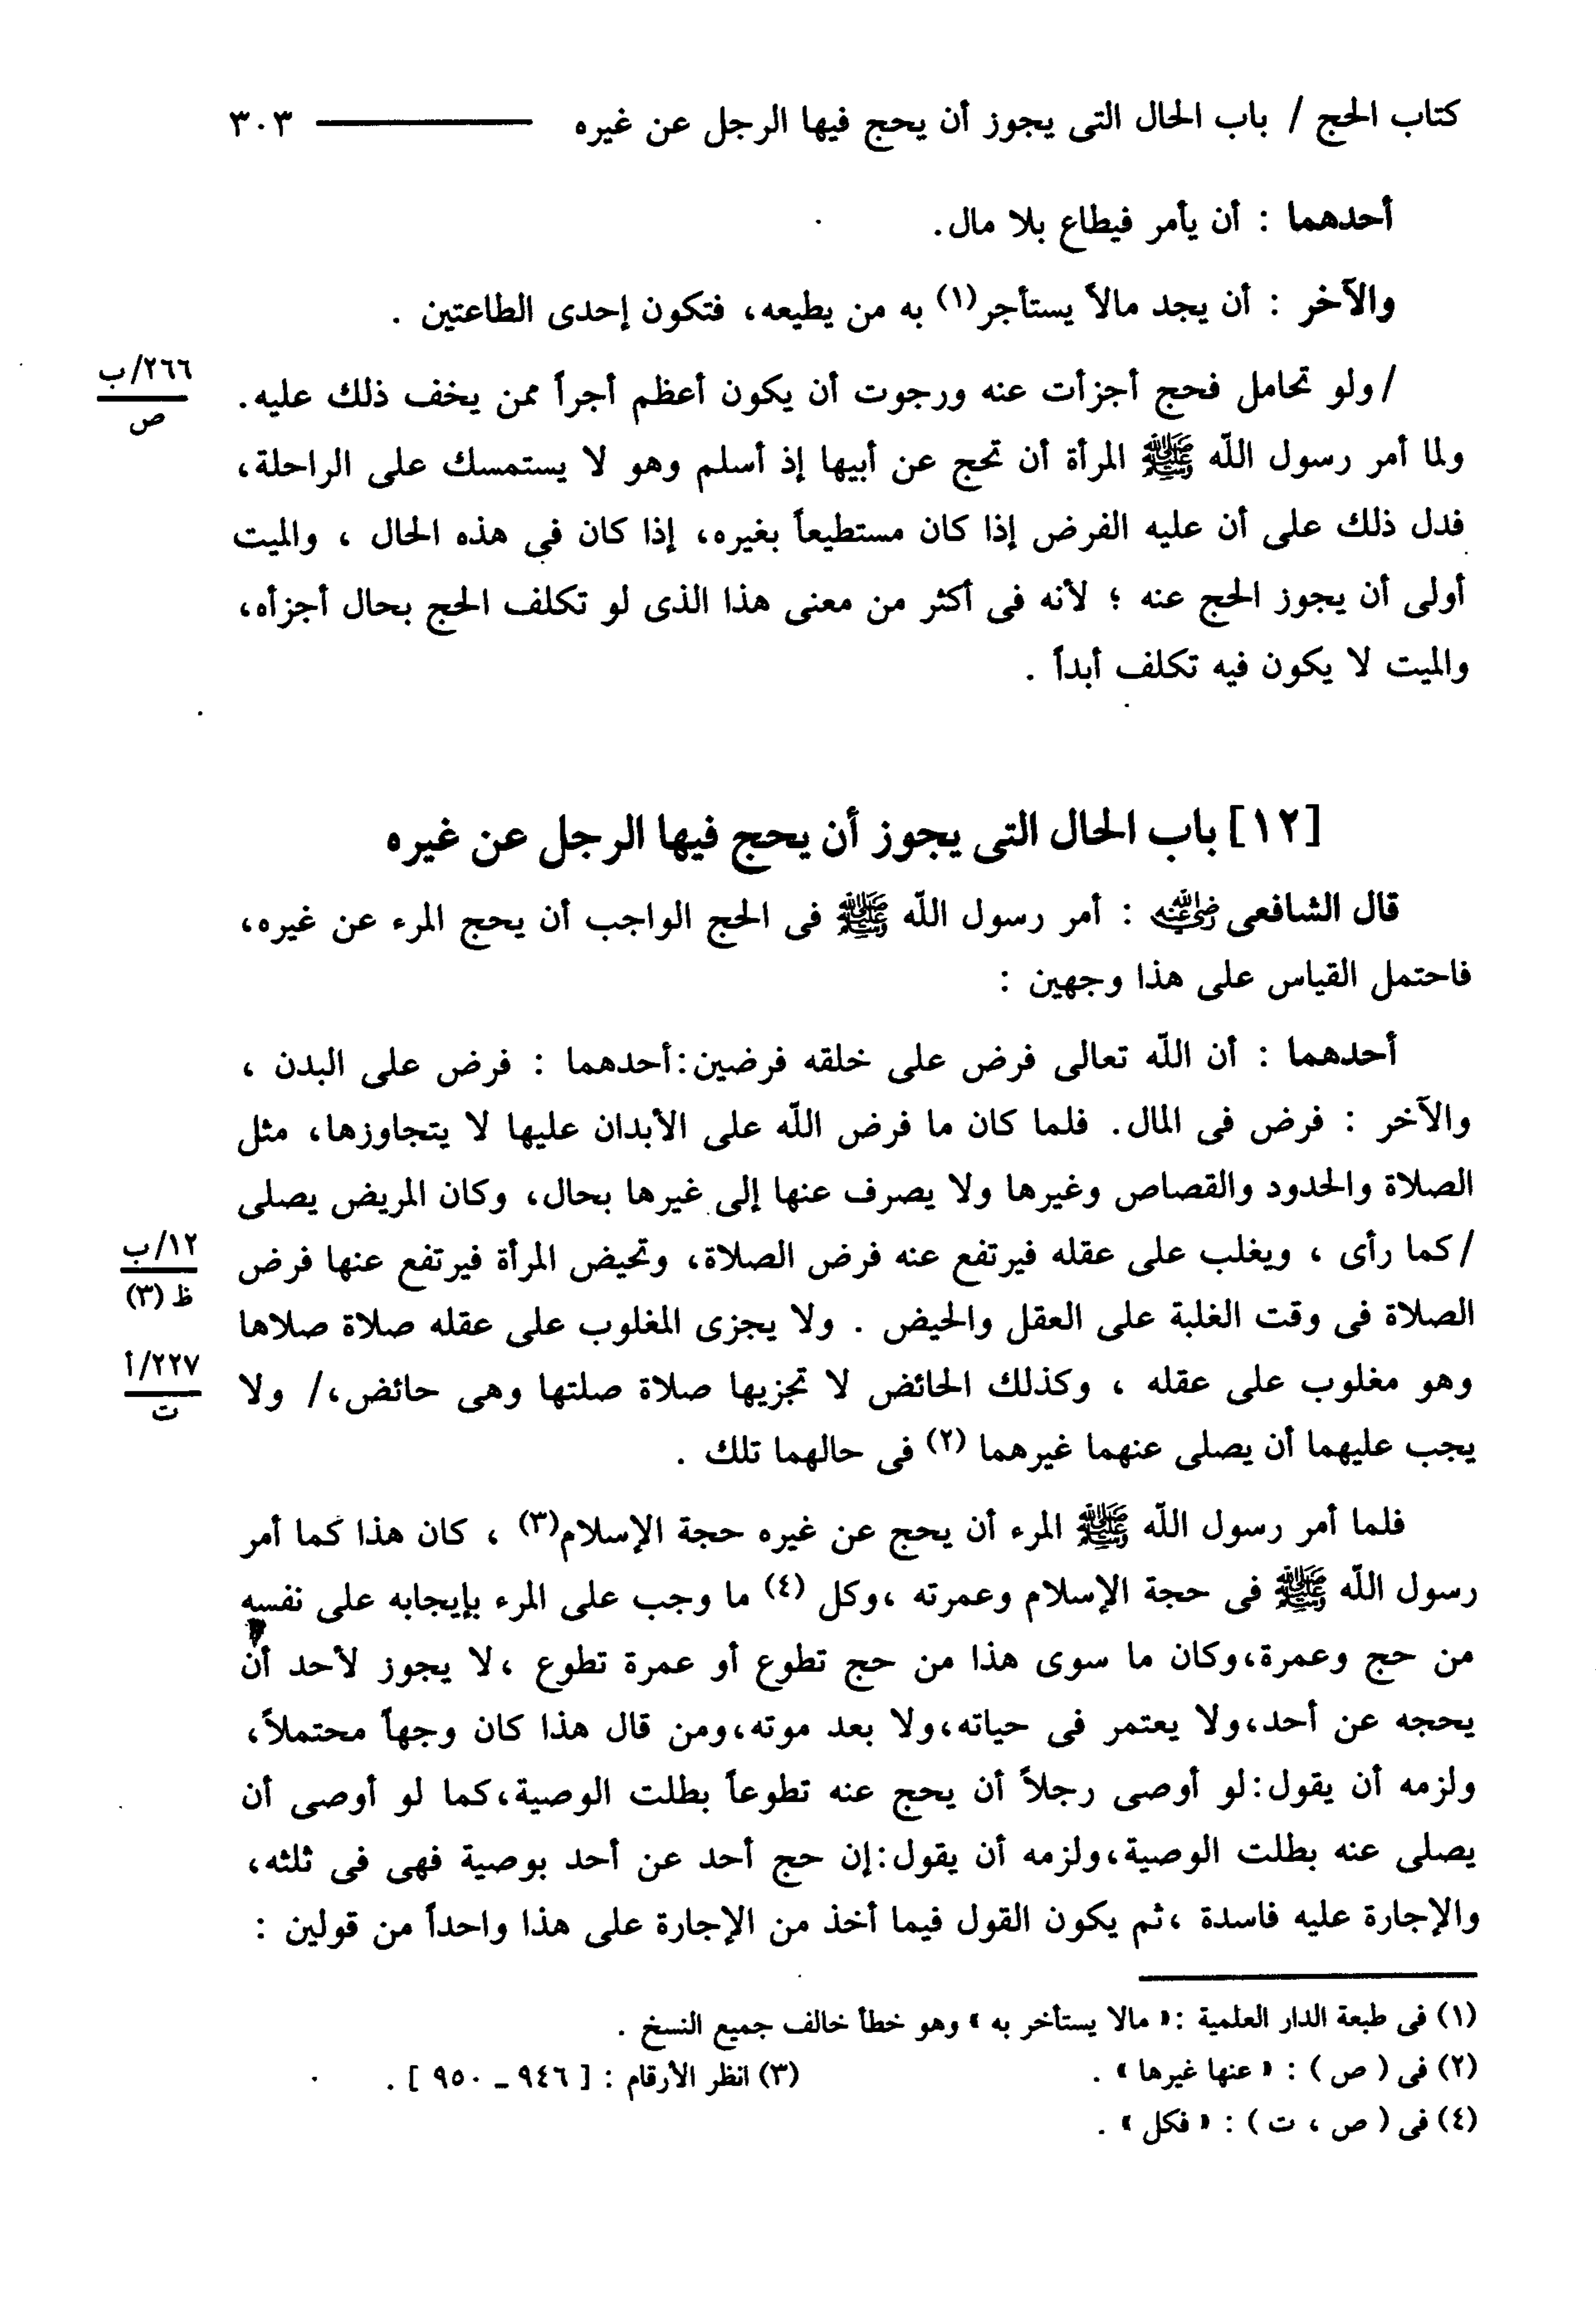 كتاب الحج / باب الحال التى يجوز أن يحج فيها الرجل عن غيره ٣٠٣
أحدهما : أن يأمر فيطاع بلا مال.
والآخر : أن يجد مالاً يستأجر(١) به من يطيعه، فتكون إحدى الطاعتين .
/ولو تحامل فحج أجزأت عنه ورجوت أن يكون أعظم أجراً ممن يخف ذلك عليه.
٢٦٦/ب
ص
ولما أمر رسول اللّه ﷺ المرأة أن تحج عن أبيها إذ أسلم وهو لا يستمسك على الراحلة،
فدل ذلك على أن عليه الفرض إذا كان مستطيعاً بغيره، إذا كان فى هذه الحال ، والميت
أولى أن يجوز الحج عنه ؛ لأنه فى أكثر من معنى هذا الذى لو تكلف الحج بحال أجزأه،
والميت لا يكون فيه تكلف أبداً .
[١٢] باب الحال التى يجوز أن يحج فيها الرجل عن غيره
قال الشافعى رضي الله عنه : أمر رسول اللّه ﷺ فى الحج الواجب أن يحج المرء عن غيره،
فاحتمل القياس على هذا وجهين :
أحدهما : أن اللّه تعالى فرض على خلقه فرضين:أحدهما : فرض على البدن ،
والآخر : فرض فى المال. فلما كان ما فرض اللّه على الأبدان عليها لا يتجاوزها، مثل
الصلاة والحدود والقصاص وغيرها ولا يصرف عنها إلى غيرها بحال، وكان المريض يصلى
/كما رأى ، ويغلب على عقله فيرتفع عنه فرض الصلاة، وتحيض المرأة فيرتفع عنها فرض
١٢/ب
ظ (٣)
الصلاة فى وقت الغلبة على العقل والحيض . ولا يجزى المغلوب على عقله صلاة صلاها
وهو مغلوب على عقله ، وكذلك الحائض لا تجزيها صلاة صلتها وهى حائض،/ ولا
٢٢٧/أ
ت
يجب عليهما أن يصلى عنهما غيرهما (٢) فى حالهما تلك .
فلما أمر رسول اللّه ﷺ المرء أن يحج عن غيره حجة الإسلام(٣) ، كان هذا كما أمر
رسول اللّه ﷺ فى حجة الإسلام وعمرته ،وكل (٤) ما وجب على المرء بإيجابه على نفسه
من حج وعمرة،وكان ما سوى هذا من حج تطوع أو عمرة تطوع ،لا يجوز لأحد أن
يحجه عن أحد،ولا يعتمر فى حياته،ولا بعد موته،ومن قال هذا كان وجهاً محتملاً،
ولزمه أن يقول:لو أوصى رجلاً أن يحج عنه تطوعاً بطلت الوصية،كما لو أوصى أن
يصلى عنه بطلت الوصية،ولزمه أن يقول:إن حج أحد عن أحد بوصية فهى فى ثلثه،
والإجارة عليه فاسدة ،ثم يكون القول فيما أخذ من الإجارة على هذا واحداً من قولين :
(١) فى طبعة الدار العلمية :« مالا يستأخر به » وهو خطأ خالف جميع النسخ .
(٢) فى ( ص ) : « عنها غيرها » . (٣) انظر الأرقام : [ ٩٤٦ ـ ٩٥٠ ] .
(٤) فى ( ص ، ت ) : « فكل » .